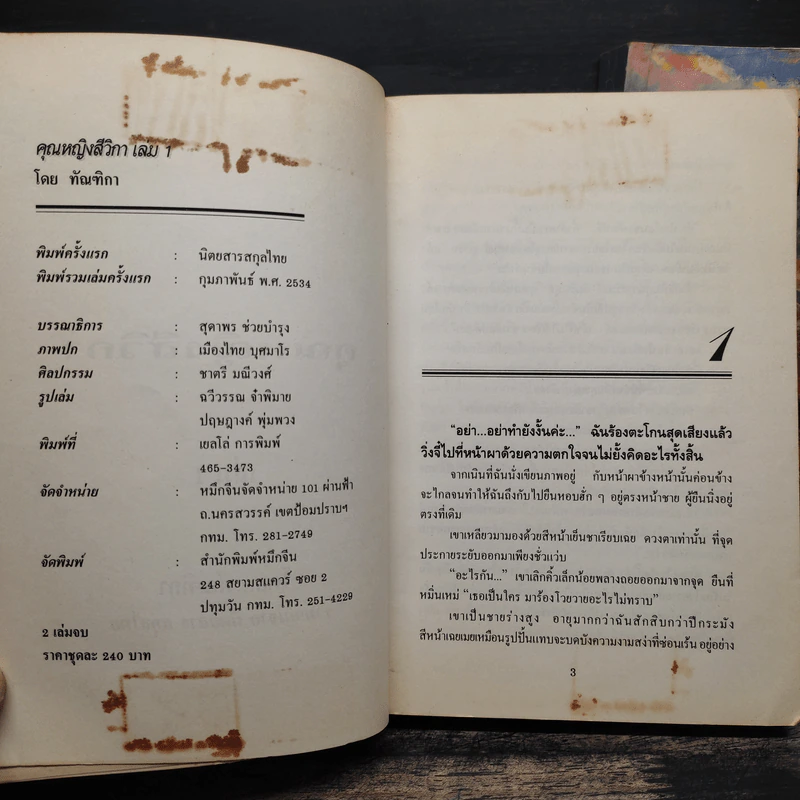 คุณหญิงสีวิกา เล่ม 1
โดย ทัณฑิกา
พิมพ์ครั้งแรก : นิตยสารสกุลไทย
พิมพ์รวมเล่มครั้งแรก : กุมภาพันธ์ พ.ศ. 2534
บรรณาธิการ : สุดาพร ช่วยบำรุง
ภาพปก : เมืองไทย บุศมาโร
ศิลปกรรม : ชาตรี มณีวงศ์
รูปเล่ม : ฉวีวรรณ จ๋าพิมาย
ปฤษฎางค์ พุ่มพวง
พิมพ์ที่ : เยลโล่ การพิมพ์
465-3473
จัดจำหน่าย : หมึกจีนจัดจำหน่าย 101 ผ่านฟ้า
ถ.นครสวรรค์ เขตป้อมปราบฯ
กทม. โทร. 281-2749
จัดพิมพ์ : สำนักพิมพ์หมึกจีน
248 สยามสแควร์ ซอย 2
ปทุมวัน กทม. โทร. 251-4229
2 เล่มจบ
ราคาชุดละ 240 บาท
1
“อย่า...อย่าทำยังงั้นค่ะ...” ฉันร้องตะโกนสุดเสียงแล้ว
วิ่งจี๋ไปที่หน้าผาด้วยความตกใจจนไม่ยั้งคิดอะไรทั้งสิ้น
จากเนินที่ฉันนั่งเขียนภาพอยู่ กับหน้าผาข้างหน้านั้นค่อนข้าง
จะไกลจนทำให้ฉันถึงกับไปยืนหอบฮัก ๆ อยู่ตรงหน้าชาย ผู้ยืนนิ่งอยู่
ตรงที่เดิม
เขาเหลียวมามองด้วยสีหน้าเย็นชาเรียบเฉย ดวงตาเท่านั้น ที่จุด
ประกายระยับออกมาเพียงชั่วแว่บ
“อะไรกัน...” เขาเลิกคิ้วเล็กน้อยพลางถอยออกมาจากจุด ยืนที่
หมิ่นเหม่ “เธอเป็นใคร มาร้องโวยวายอะไรไม่ทราบ”
เขาเป็นชายร่างสูง อายุมากกว่าฉันสักสิบกว่าปีกระมัง
สีหน้าเฉยเมยเหมือนรูปปั้นแทบจะบดบังความงามสง่าที่ซ่อนเร้น อยู่อย่าง
3